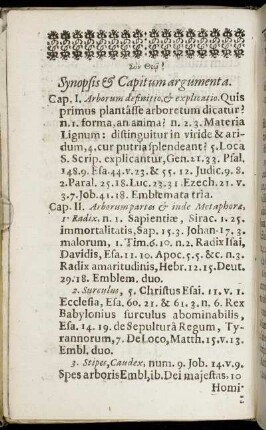 Σὺν Θεῷ!
Synopsis & Capitum argumenta.
Cap. I. Arborum definitio, & explicatio. Quis
primus plantâsse arbores tum dicatur?
n. 1. forma, an anima? n. 2. 3. Materia
Lignum: distinguitur in viride & ari-
dum, 4. cur putria splendeant? 5. Loca
S. Scrip. explicantur, Gen. 21. 33. Psal.
148. 9. Esa. 44. v. 23. & 55. 12. Judic. 9. 8.
2. Paral. 25. 18. Luc. 23. 31. Ezech. 21. v.
3. 7. Job. 41. 18. Emblemata tria.
Cap. II. Arborum partes & inde Metaphoræ,
1. Radix. n. 1. Sapientiæ, Sirac. 1. 25.
immortalitatis, Sap. 15. 3. Johan. 17. 3.
malorum, 1. Tim. 6. 10. n. 2. Radix Isai,
Davidis, Esa. 11. 10. Apoc. 5. 5. &c. n. 3.
Radix amaritudinis, Hebr. 12. 15. Deut.
29. 18. Emblem. duo.
2. Surculus, 5. Christus Esai. 11. v. 1.
Ecclesia, Esa. 60. 21. & 61. 3. n. 6. Rex
Babylonius surculus abominabilis,
Esa. 14. 19. de Sepulturâ Regum, Ty-
rannorum, 7. De Loco, Matth. 15. v. 13.
Embl. duo.
3. Stipes, Caudex, num. 9. Job. 14. v. 9.
Spes arboris Embl, ib. Dei majestas. 10
Homi-